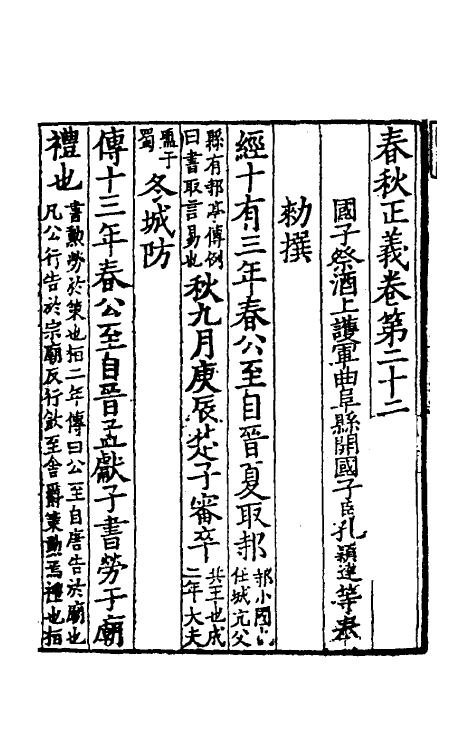 春秋正義卷第二十二
國子祭酒上護軍曲阜縣開國子臣孔穎達等奉
勑撰
經十有三年春公至自晉夏取邿邿小國也任城亢父
縣有邿亭傳例曰書取言易也秋九月庚辰楚子審卒共王也成二年大夫
盟于蜀冬城防
傳十三年春公至自晉孟獻子書勞于廟
禮也書勲勞於策也桓二年傳曰公至自唐告於廟也凡公行告於宗廟反行飲至舍爵策勲焉禮也桓